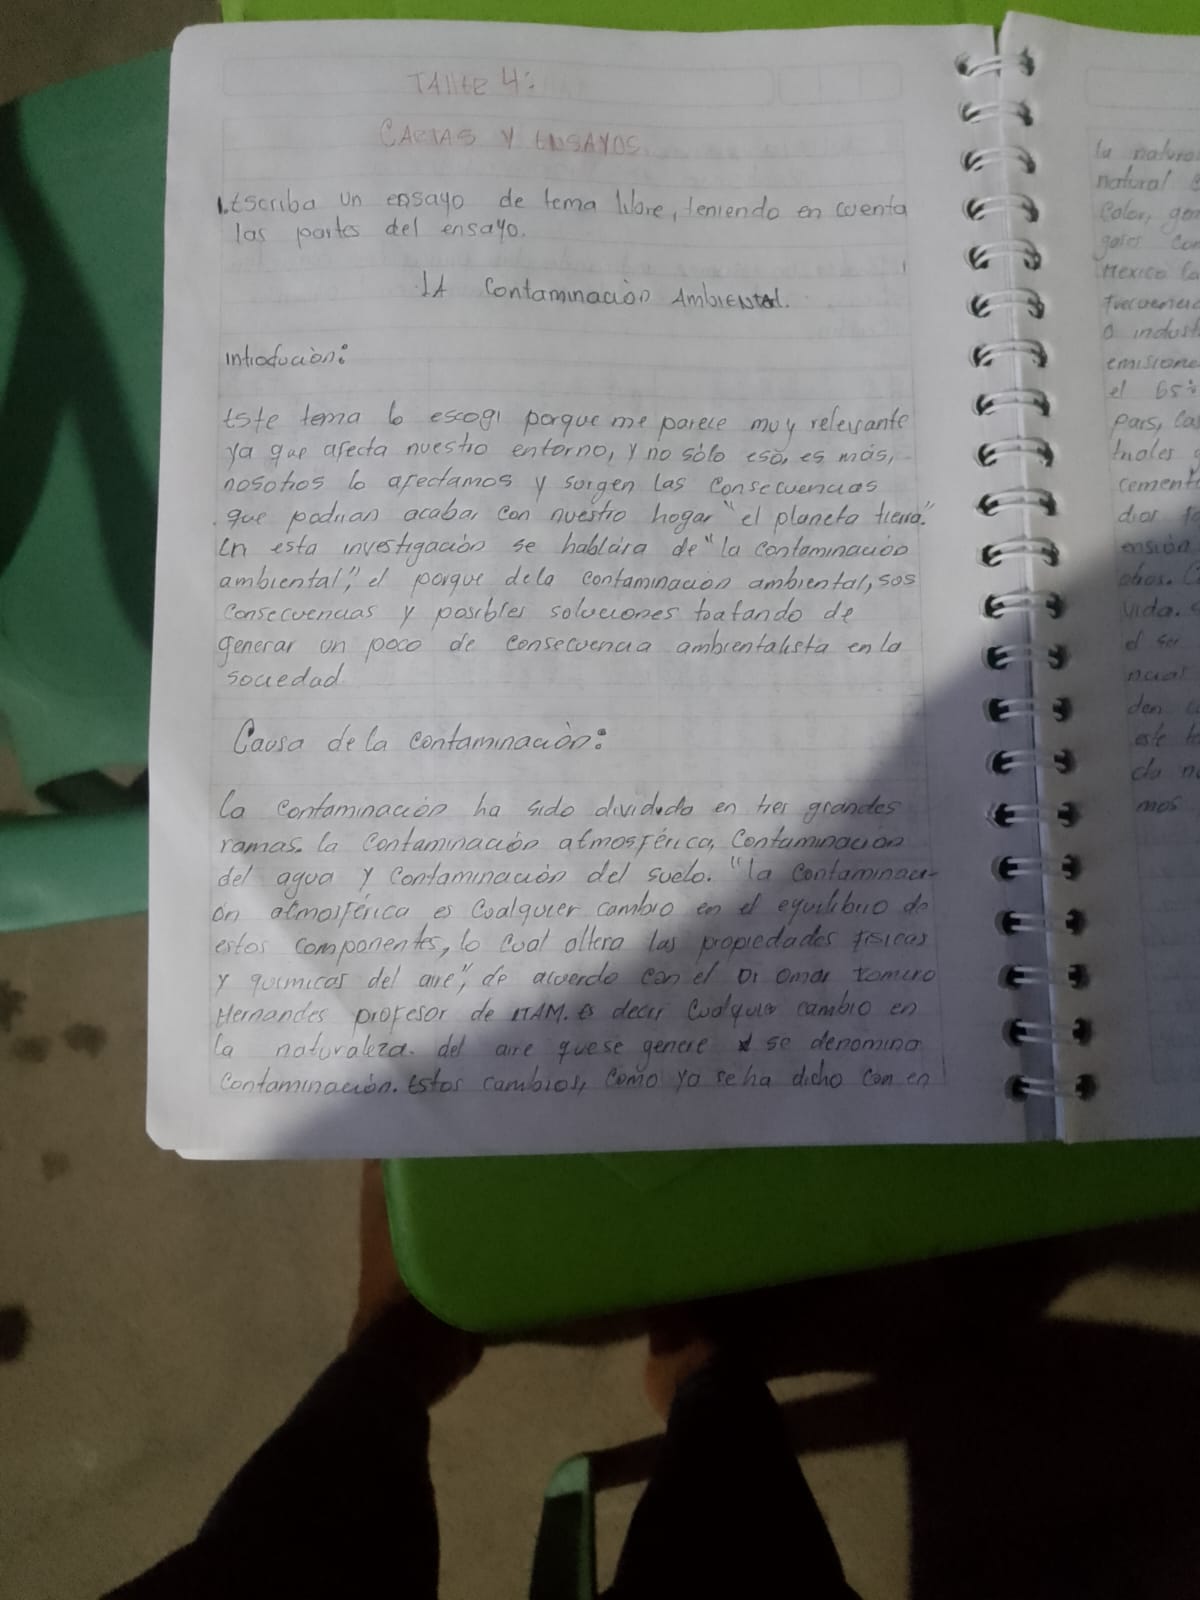 Taller 4:
CARTAS Y ENSAYOS
1. Escriba un ensayo de tema libre, teniendo en cuenta
las partes del ensayo.
LA Contaminación AMBIENtal.
introdución:
Este tema lo escogi porque me parece muy relevante
ya que afecta nuestro entorno, y no sólo eso, es más,
nosotros lo afectamos y surgen las consecuencias
que podrian acabar con nuestro hogar "el planeta tierra."
En esta investigación se hablára de "la contaminación
ambiental", el porque dela contaminación ambiental, sus
consecuencias y posibles soluciones tratando de
generar un poco de consecuencia ambientalista en la
sociedad
Causa de la contaminación:
la contaminación ha sido dividida en tres grandes
ramas. la contaminación atmosférica, contaminación
del agua y contaminación del suelo. "la contaminaci-
ón atmosférica es cualquier cambio en el equilibrio de
estos componentes, lo cual altera las propiedades físicas
y quimicas del aire", de acuerdo con el Dr Omar Romero
Hernandes profesor de ITAM. es decir cualquier cambio en
la naturaleza del aire que se genere se denomina
contaminación. Estos cambios, como ya se ha dicho con en
la natura
natural
Calor, gen
gases con
Mexico la
frecuencia
o indust
emisione
el 65%
pais, las
tuales
cemente
ensión
otros.
vida.
el ser
den
este
cla n
mos